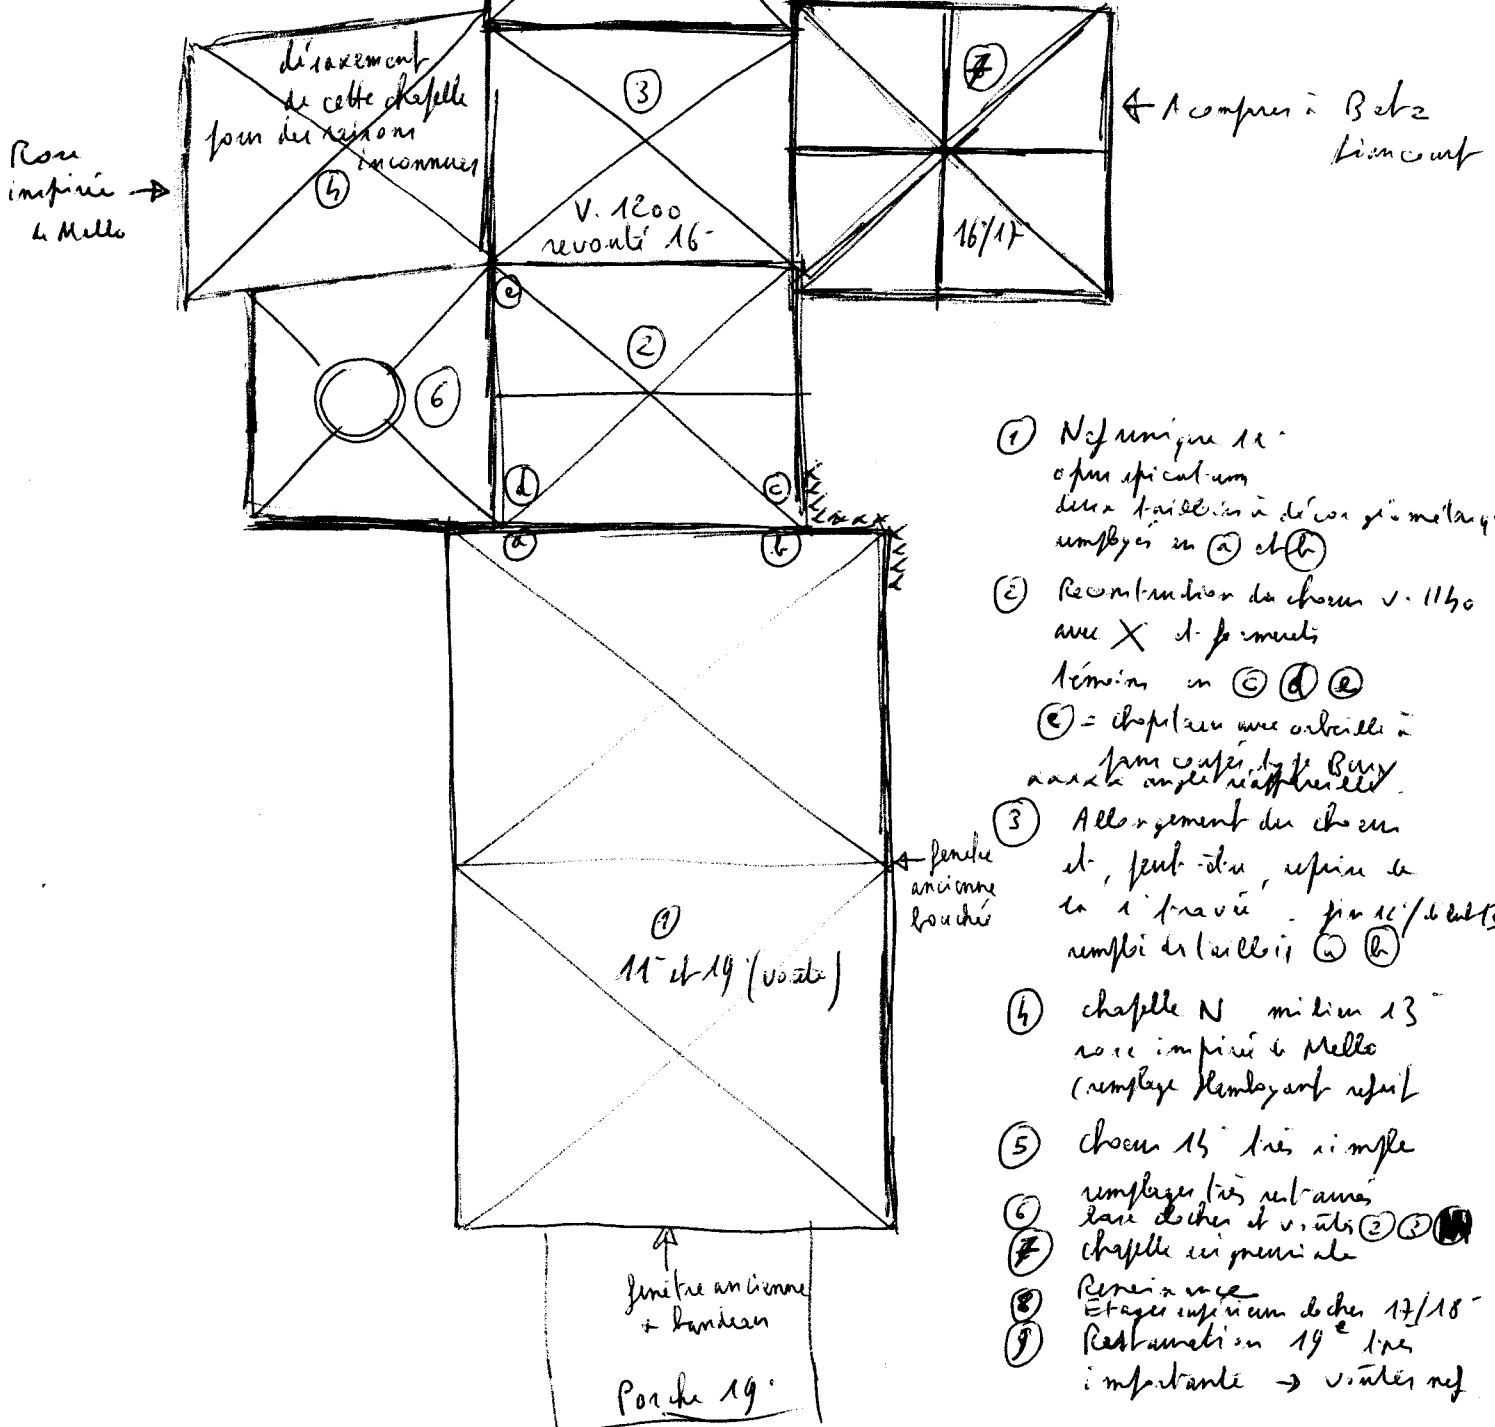 désaxement
de cette chapelle
pour des raisons
inconnues
4
Rose
inspirée →
de Mello
3
V. 1200
revoûté 16
7
16/17
← A comparer à Betz
Liancourt
e
2
6
d
c
a
b
← fenêtre
ancienne
bouchée
1
11 et 19 (voûte)
fenêtre ancienne
+ bandeau
Porche 19
1 Nef unique 11
opus spicatum
deux tailloirs à décor géométriq
remployés en a et b
2 Reconstruction du choeur v. 1140
avec X et formerets
témoins en c d e
e = chapiteau avec corbeille à
pans coupés, type Bury
angle réappareillé
3 Allongement du choeur
et, peut-être, reprise de
la 1 travée . fin 12/début 13
remploi des tailloirs a b
4 chapelle N milieu 13
rose inspirée de Mello
(remplage flamboyant refait
5 choeur 13 très simple
remplages très restaurés
6 base clocher et voûtes 2 3
7 chapelle seigneuriale
Renaissance
8 Etages supérieurs clocher 17/18
9 Restauration 19e très
importante → voûtes nef